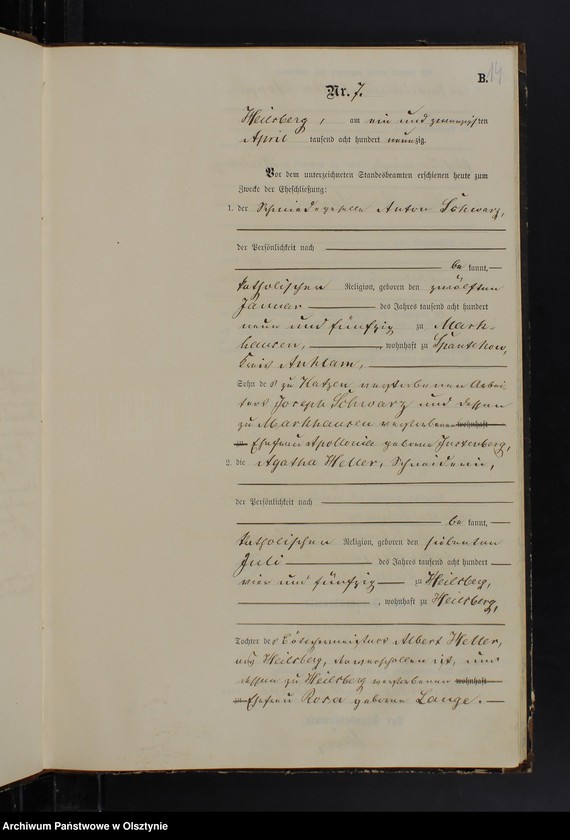 B. 14
Nr. 7.
Heilsberg, am ein und zwanzigsten
April tausend acht hundert neunzig.
Vor dem unterzeichneten Standesbeamten erschienen heute zum
Zwecke der Eheschließung:
1. der Schmiedegeselle Anton Schwarz,
der Persönlichkeit nach
be kannt,
katholischen Religion, geboren den zwölften
Januar des Jahres tausend acht hundert
neun und fünfzig zu Mark-
hausen, wohnhaft zu Spantekow,
Kreis Anklam,
Sohn des zu Katzen verstorbenen Arbei
ters Joseph Schwarz und dessen
zu Markhausen verstorbenen wohnhaft
zu Ehefrau Apollonia geborne
2. die Agatha Heller, Schneiderin,
der Persönlichkeit nach
be kannt,
katholischen Religion, geboren den siebenten
Juli des Jahres tausend acht hundert
vier und fünfzig zu Heilsberg,
, wohnhaft zu Heilsberg,
Tochter des Albert Heller,
aus Heilsberg, der verschollen ist, und
dessen zu Heilsberg verstorbenen wohnhaft
zu Ehefrau Rosa geborne Lange.
Archiwum Państwowe w Olsztynie